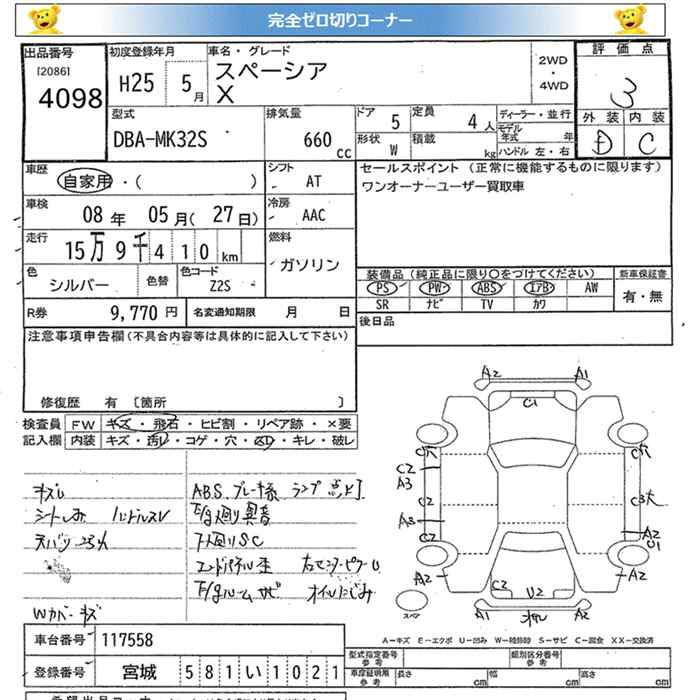 完全ゼロ切りコーナー
出品番号 初度登録年月 車名・グレード 評価点
[2086] 4098 H25 5月 スペーシア X 2WD・4WD 3
型式 排気量 ドア 5 定員 4人 ディーラー・並行 外装 内装
DBA-MK32S 660cc 形状 W 積載 kg モデル年式 年 D C
ハンドル 左・右
車歴 シフト セールスポイント (正常に機能するものに限ります)
自家用・( ) AT ワンオーナーユーザー買取車
車検 冷房
08年 05月(27日) AAC
走行 燃料
15万9千410km ガソリン
色 シルバー 色替 色コード Z2S
装備品(純正品に限り○をつけてください) 新車保証書
PS PW ABS エアB AW 有・無
SR ナビ TV カワ
R券 9,770円 名変通知期限 月 日 後日品
注意事項申告欄(不具合内容等は具体的に記入して下さい)
修復歴 有 [箇所 ]
検査員 FW キズ・飛石・ヒビ割・リペア跡・×要
記入欄 内装 キズ・汚レ・コゲ・穴・スレ・キレ・破レ
A2 A1
C1
C穴 C穴
C2
A3
C2 C3大
A3 A2
C2 C1
A2 A2
C2 U2
A1 A2
スペア
キズレ ABS ブレーキ様 ランプ 点灯
シートしみ ハンドルスレ 下廻り異音
下廻りSC
エンドパネル歪 右センターピラーU
サビ オイルにじみ
Wカバーキズ
A-キズ E-エクボ U-凹み W-補修跡 S-サビ C-腐食 XX-交換済
車台番号 117558
登録番号 宮城 581 い 1021
型式指定番号 参考 類別区分番号 参考
車庫証明用 参考 長さ cm 幅 cm 高さ cm